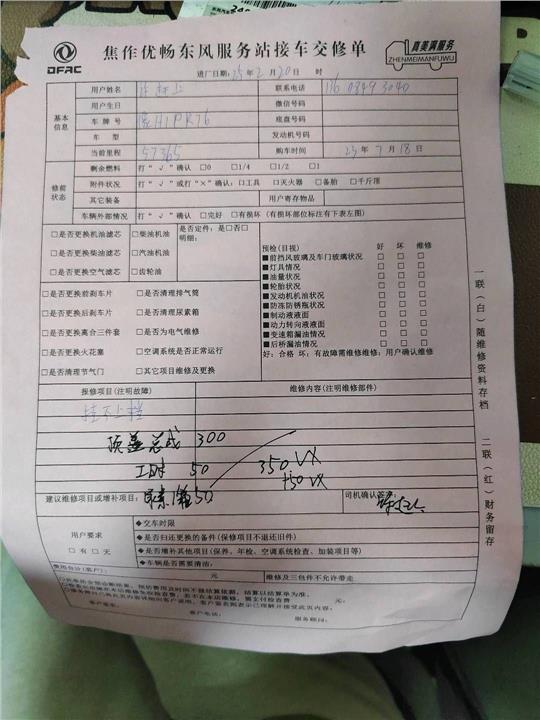 DFAC
焦作优畅东风服务站接车交修单
真美满服务
ZHENMEIMANFUWU
进厂日期:25年2月20日 时
用户姓名 联系电话
用户生日 微信号码
基本信息
车牌号 豫H1PR76 底盘号码
车型 发动机号码
当前里程 57365 购车时间 23年7月18日
修前状态
剩余燃料 打“√”确认 □0 □1/4 □1/2 □1
附件状况 打“√”或打“×”确认:□工具 □灭火器 □备胎 □千斤顶
其它装备 用户寄存物品
车辆外部情况 打“√”确认 □完好 □有损坏(有损坏部位标注有下表左图)
□是否更换机油滤芯 □柴油机油 是否定件:是□否□
明细:
□是否更换柴油滤芯 □汽油机油
□是否更换空气滤芯 □齿轮油
预检(目视) 好 坏 维修
■前挡风玻璃及车门玻璃状况 □ □ □
■灯具情况 □ □ □
■油量状况 □ □ □
■轮胎状况 □ □ □
■发动机机油状况 □ □ □
■防冻防锈瓶状况 □ □ □
■制动液液面 □ □ □
■动力转向液液面 □ □ □
■变速箱漏油情况 □ □ □
■后桥漏油情况 □ □ □
好:合格 坏:有故障需维修维修:用户确认维修
□是否更换前刹车片 □是否清理排气筒
□是否更换后刹车片 □是否清理尿素箱
□是否更换离合三件套 □是否为电气维修
□是否更换火花塞 □空调系统是否正常运行
□是否清理节气门 □其它项目维修及更换
报修项目(注明故障) 维修内容(注明维修部件)
挂不上档
顶盖总成 300
工时 50 350 VX
+50 VX
建议维修项目或增补项目: 50 司机确认签字:
用户要求
□有 □无
◆交车时限
◆是否归还更换的备件(保修项目不退还旧件)
◆是否增补其他项目(保养、年检、空调系统检查、加装项目等)
◆车辆是否需要清洁:
费用合计(客户): 元 维修及三包件不允许带走
元:
客户签字: 客户电话: 服务顾问:
一联(白)随维修资料存档 二联(红)财务留存